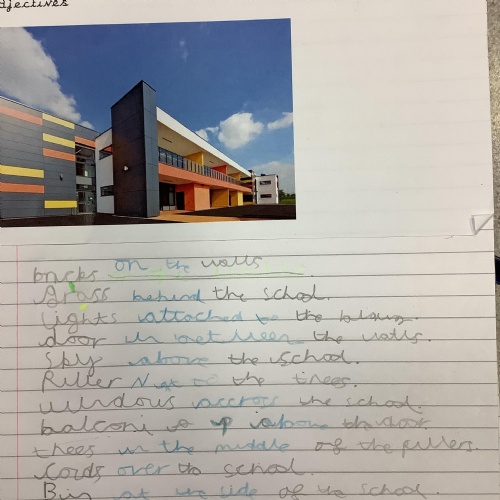 djectives
bricks on the walls
Grass behind the school.
Lights attached to the
door in between the walls.
Sky above the school.
Piller Next to the trees.
windous accross the school.
balconi above the door
trees in the middle of the pillers.
over to school.
Bin at the side of the school.